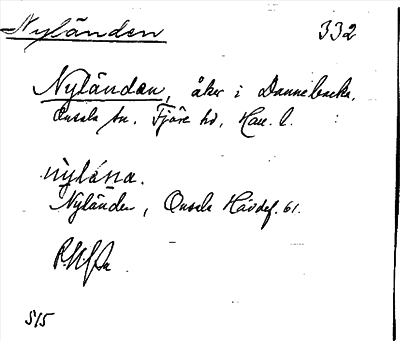 Nyländen 332
Nyländen, åker i Dannebacka,
Onsala sn, Fjäre hd, Hall. l.
nylána.
Nyländen, Onsala Hävdef. 61.
515